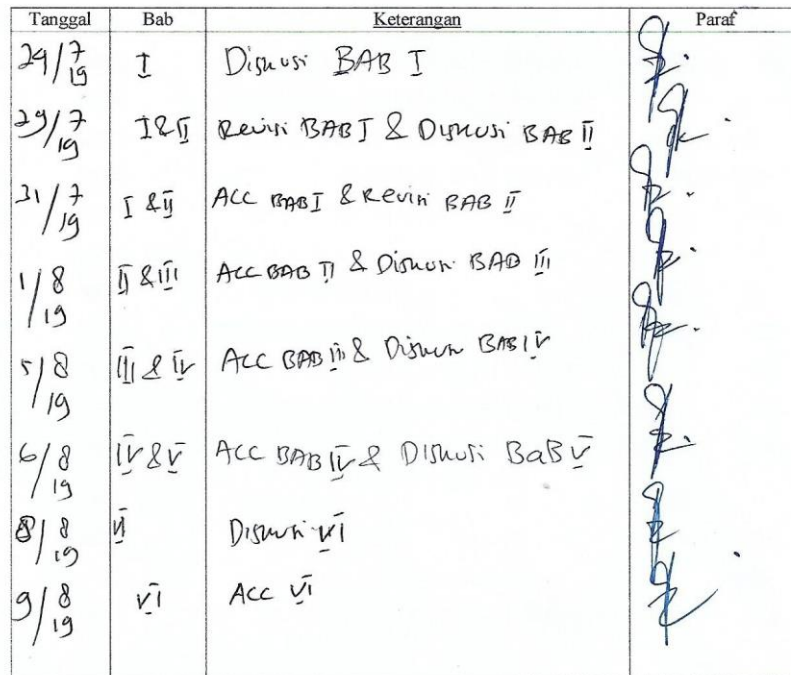 Tanggal Bab Keterangan Paraf
24/7/19 I Diskusi BAB I
29/7/19 I & II Revisi BAB I & Diskusi BAB II
31/7/19 I & II ACC BAB I & Revisi BAB II
1/8/19 II & III ACC BAB II & Diskusi BAB III
5/8/19 III & IV ACC BAB III & Diskusi BAB IV
6/8/19 IV & V ACC BAB IV & Diskusi BaB V
8/8/19 VI Diskusi VI
9/8/19 VI ACC VI